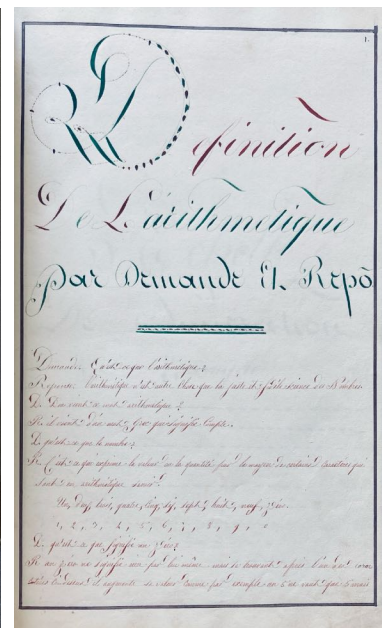 1.
Définition
De L'arithmetique
par Demande Et Repō
Demande. Qu'est ce que l'arithmétique ?
Réponse. l'arithmétique n'est autre chose que la juste et science du Nombre
D. D'ou vient ce mot arithmétique ?
R. il vient d'un mot Grec qui signifie Compte.
D. qu'est ce que le nombre ?
R. C'est ce qui exprime la valeur ou la quantité par le moyen de certains Caractères que
en arithmétique
Un, Deux, trois, quatre, Cinq, six, sept, huit, neuf, zéro.
1, 2, 3, 4, 5, 6, 7, 8, 9, 0
D. qu'est ce que signifie un zéro ?
R. un zéro ne signifie rien par lui même mais se trouvant après l'un des
il augmente sa valeur comme par exemple un 5 ne vaut que 5 mais